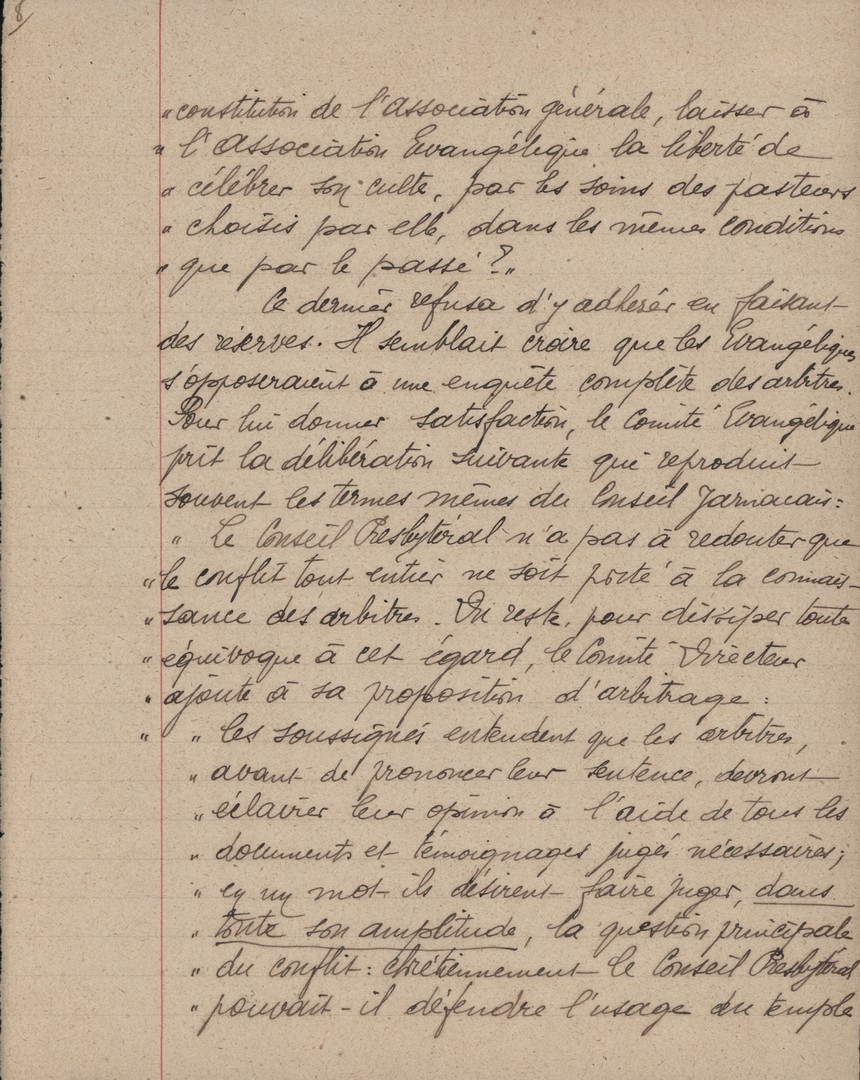 8/
"constitution de l'association générale, laisser à
" l'association Evangélique la liberté de
" célébrer son culte, par les soins des pasteurs
" choisis par elle, dans les mêmes conditions
" que par le passé ?"
Ce dernier refusa d'y adhérer en faisant
des réserves. Il semblait croire que les Evangéliques
s'opposeraient à une enquête complète des arbitres.
Pour lui donner satisfaction, le Comité Evangélique
prit la délibération suivante qui reproduit
souvent les termes mêmes du Conseil Jarnacais:
" Le Conseil Presbytéral n'a pas à redouter que
"le conflit tout entier ne soit porté à la connais-
"sance des arbitres. Du reste, pour dissiper toute
"équivoque à cet égard, le Comité Directeur
"ajoute à sa proposition d'arbitrage :
" " les soussignés entendent que les arbitres,
" avant de prononcer leur sentence, devront
" éclairer leur opinion à l'aide de tous les
" documents et témoignages jugés nécessaires ;
" en un mot ils désirent faire juger, dans
" toute son amplitude, la question principale
" du conflit : chrétiennement le Conseil Presbytéral
" pouvait-il défendre l'usage du temple